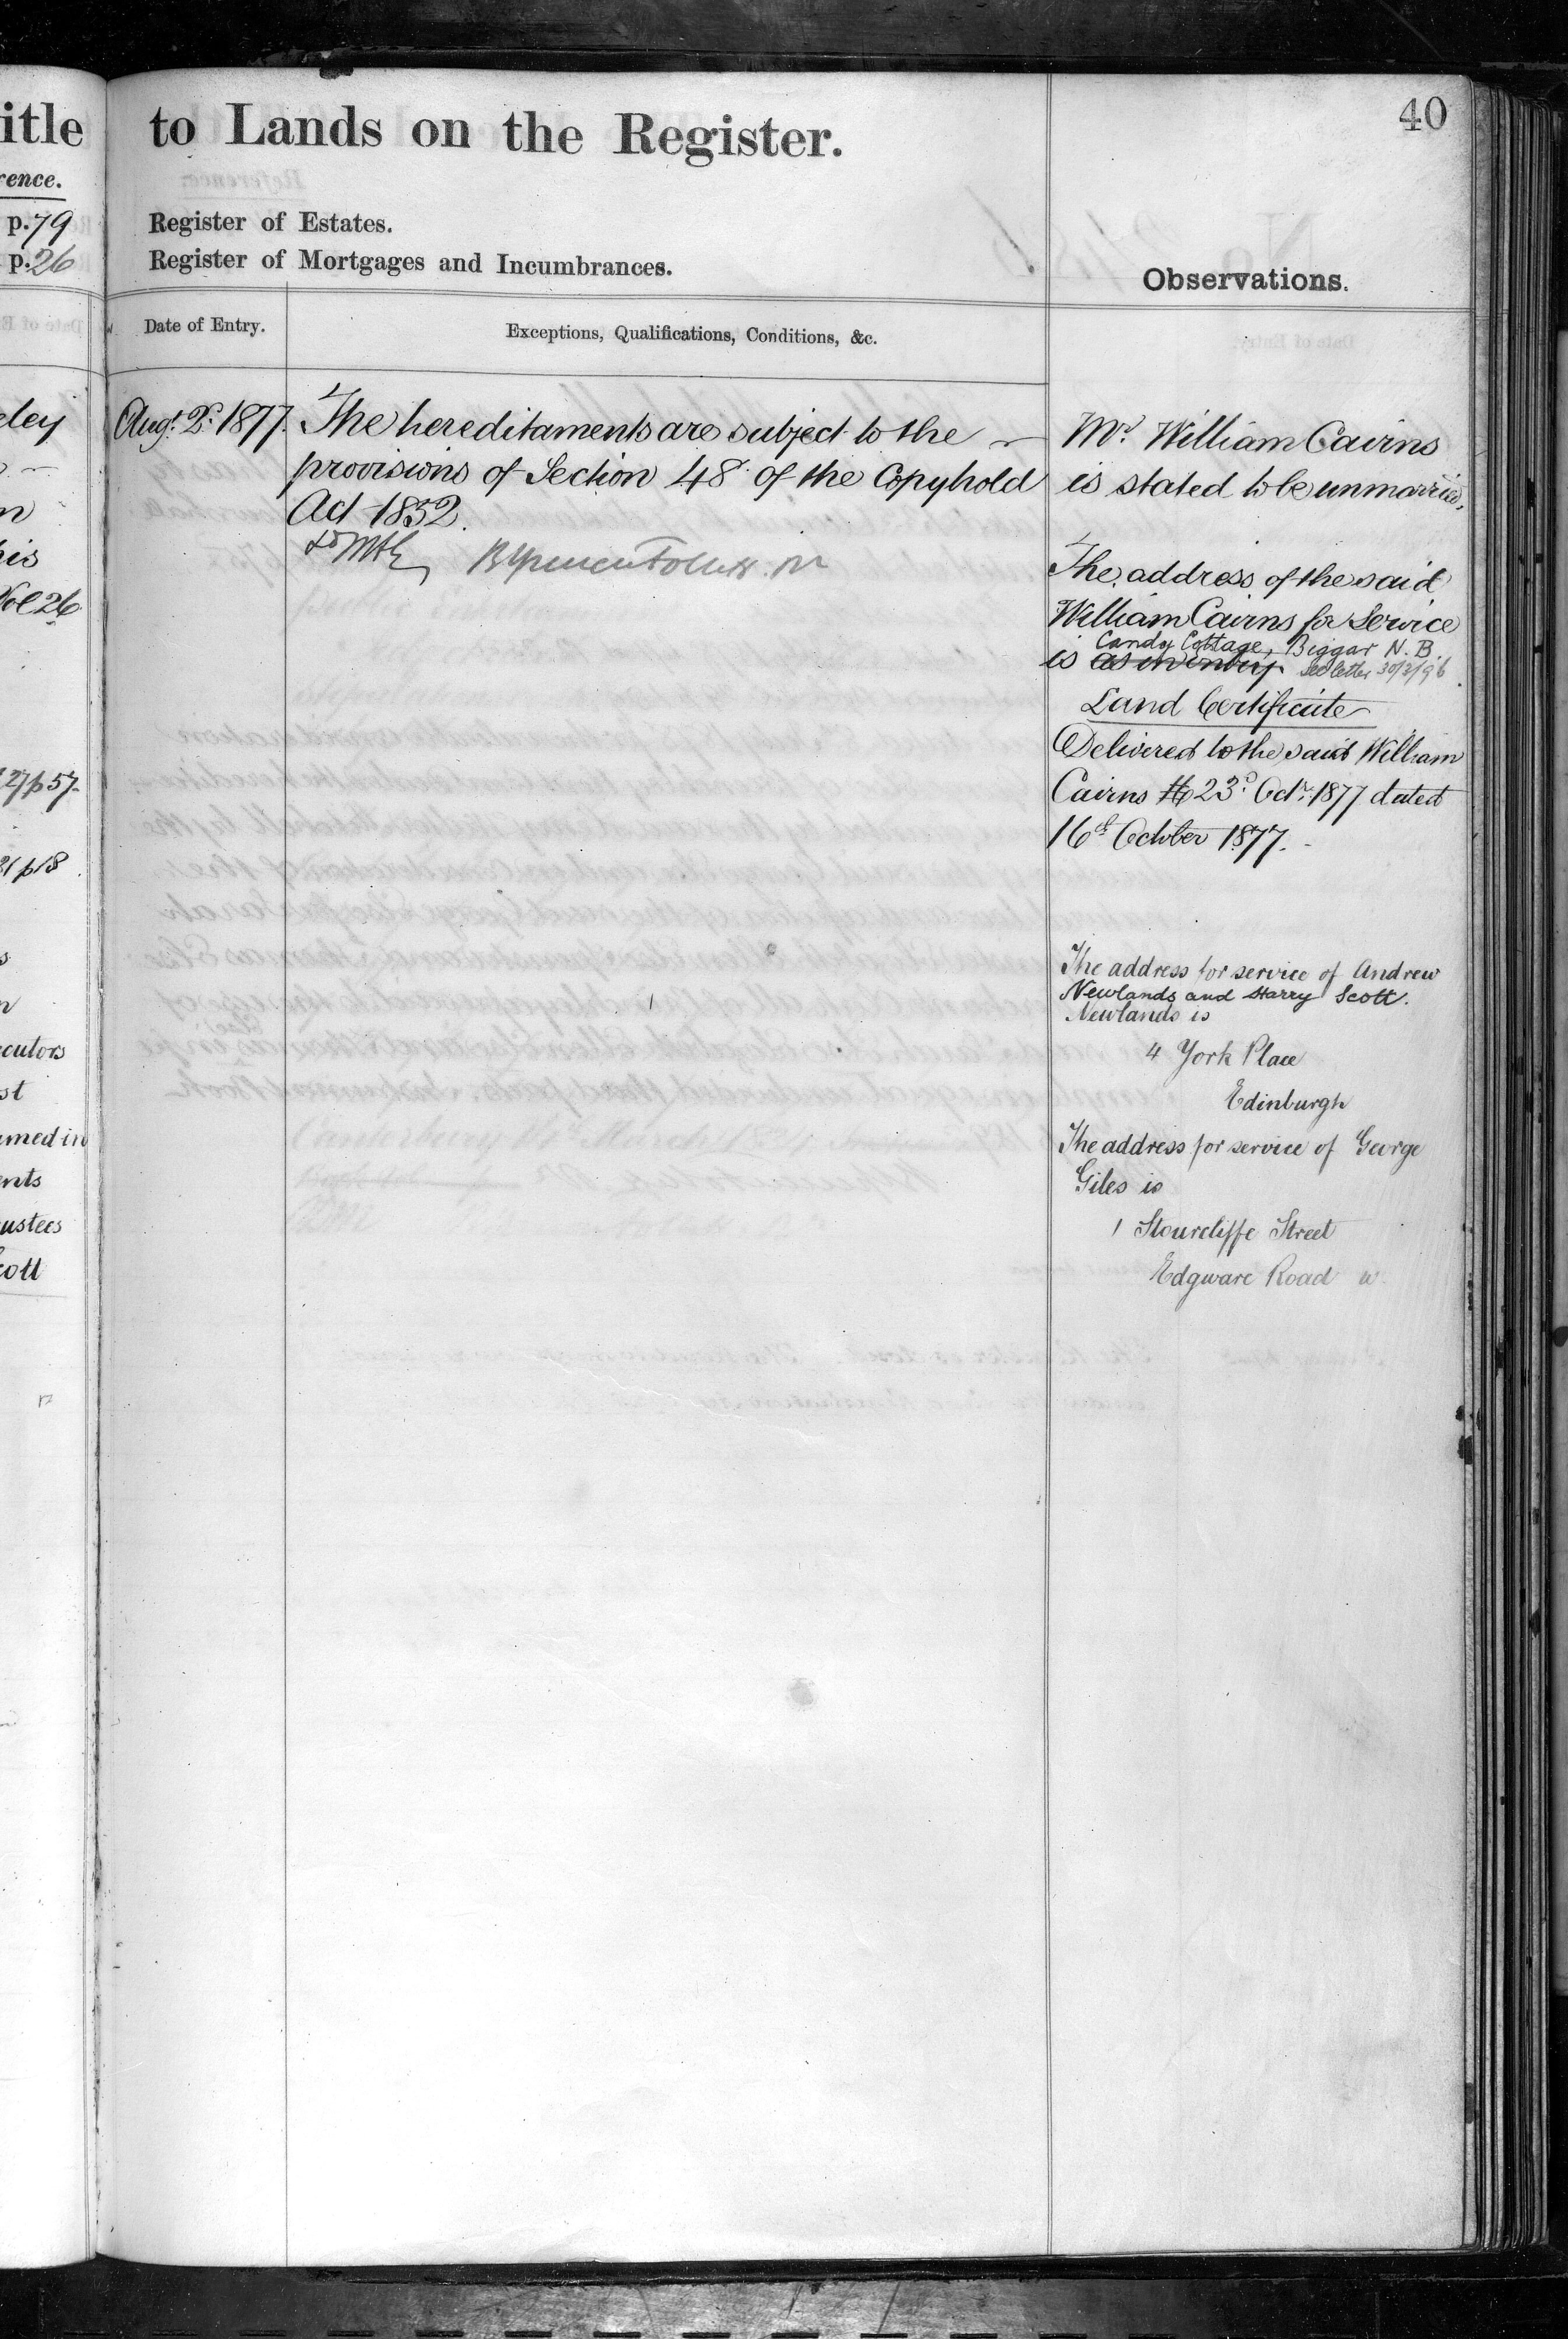 40
itle
to Lands on the Register.
rence.
p. 79
Register of Estates.
p. 26
Register of Mortgages and Incumbrances.
Observations.
Date of Entry.
Exceptions, Qualifications, Conditions, &c.
Augt. 2d. 1877.
The hereditaments are subject to the
provisions of Section 48 of the Copyhold
Act 1852.
Mr. William Cairns
is stated to be unmarried.
The address of the said
William Cairns for Service
Candy Cottage, Biggar N.B.
is as in entry. See letter 30/3/96.
Land Certificate
Delivered to the said William
Cairns 23d. Octr. 1877 dated
16th October 1877.
The address for service of Andrew
Newlands and Harry Scott.
Newlands is
4 York Place
Edinburgh
The address for service of George
Giles is
1 Stourcliffe Street
Edgware Road W.
eley
n
his
Vol 26
27 p 57.
31 p 18.
s
n
ecutors
st
amed in
ents
ustees
cott